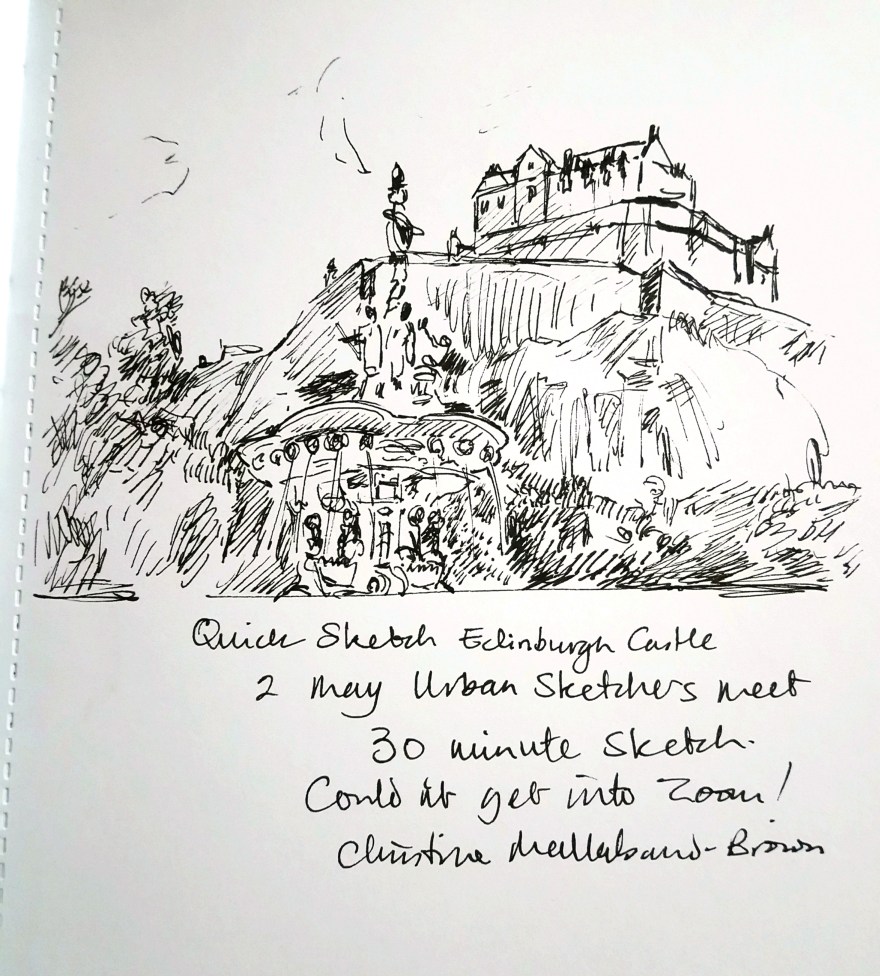 Quick Sketch Edinburgh Castle
2 May Urban Sketchers meet
30 minute Sketch.
Could nt get into Zoom!
Christine Mallaband-Brown